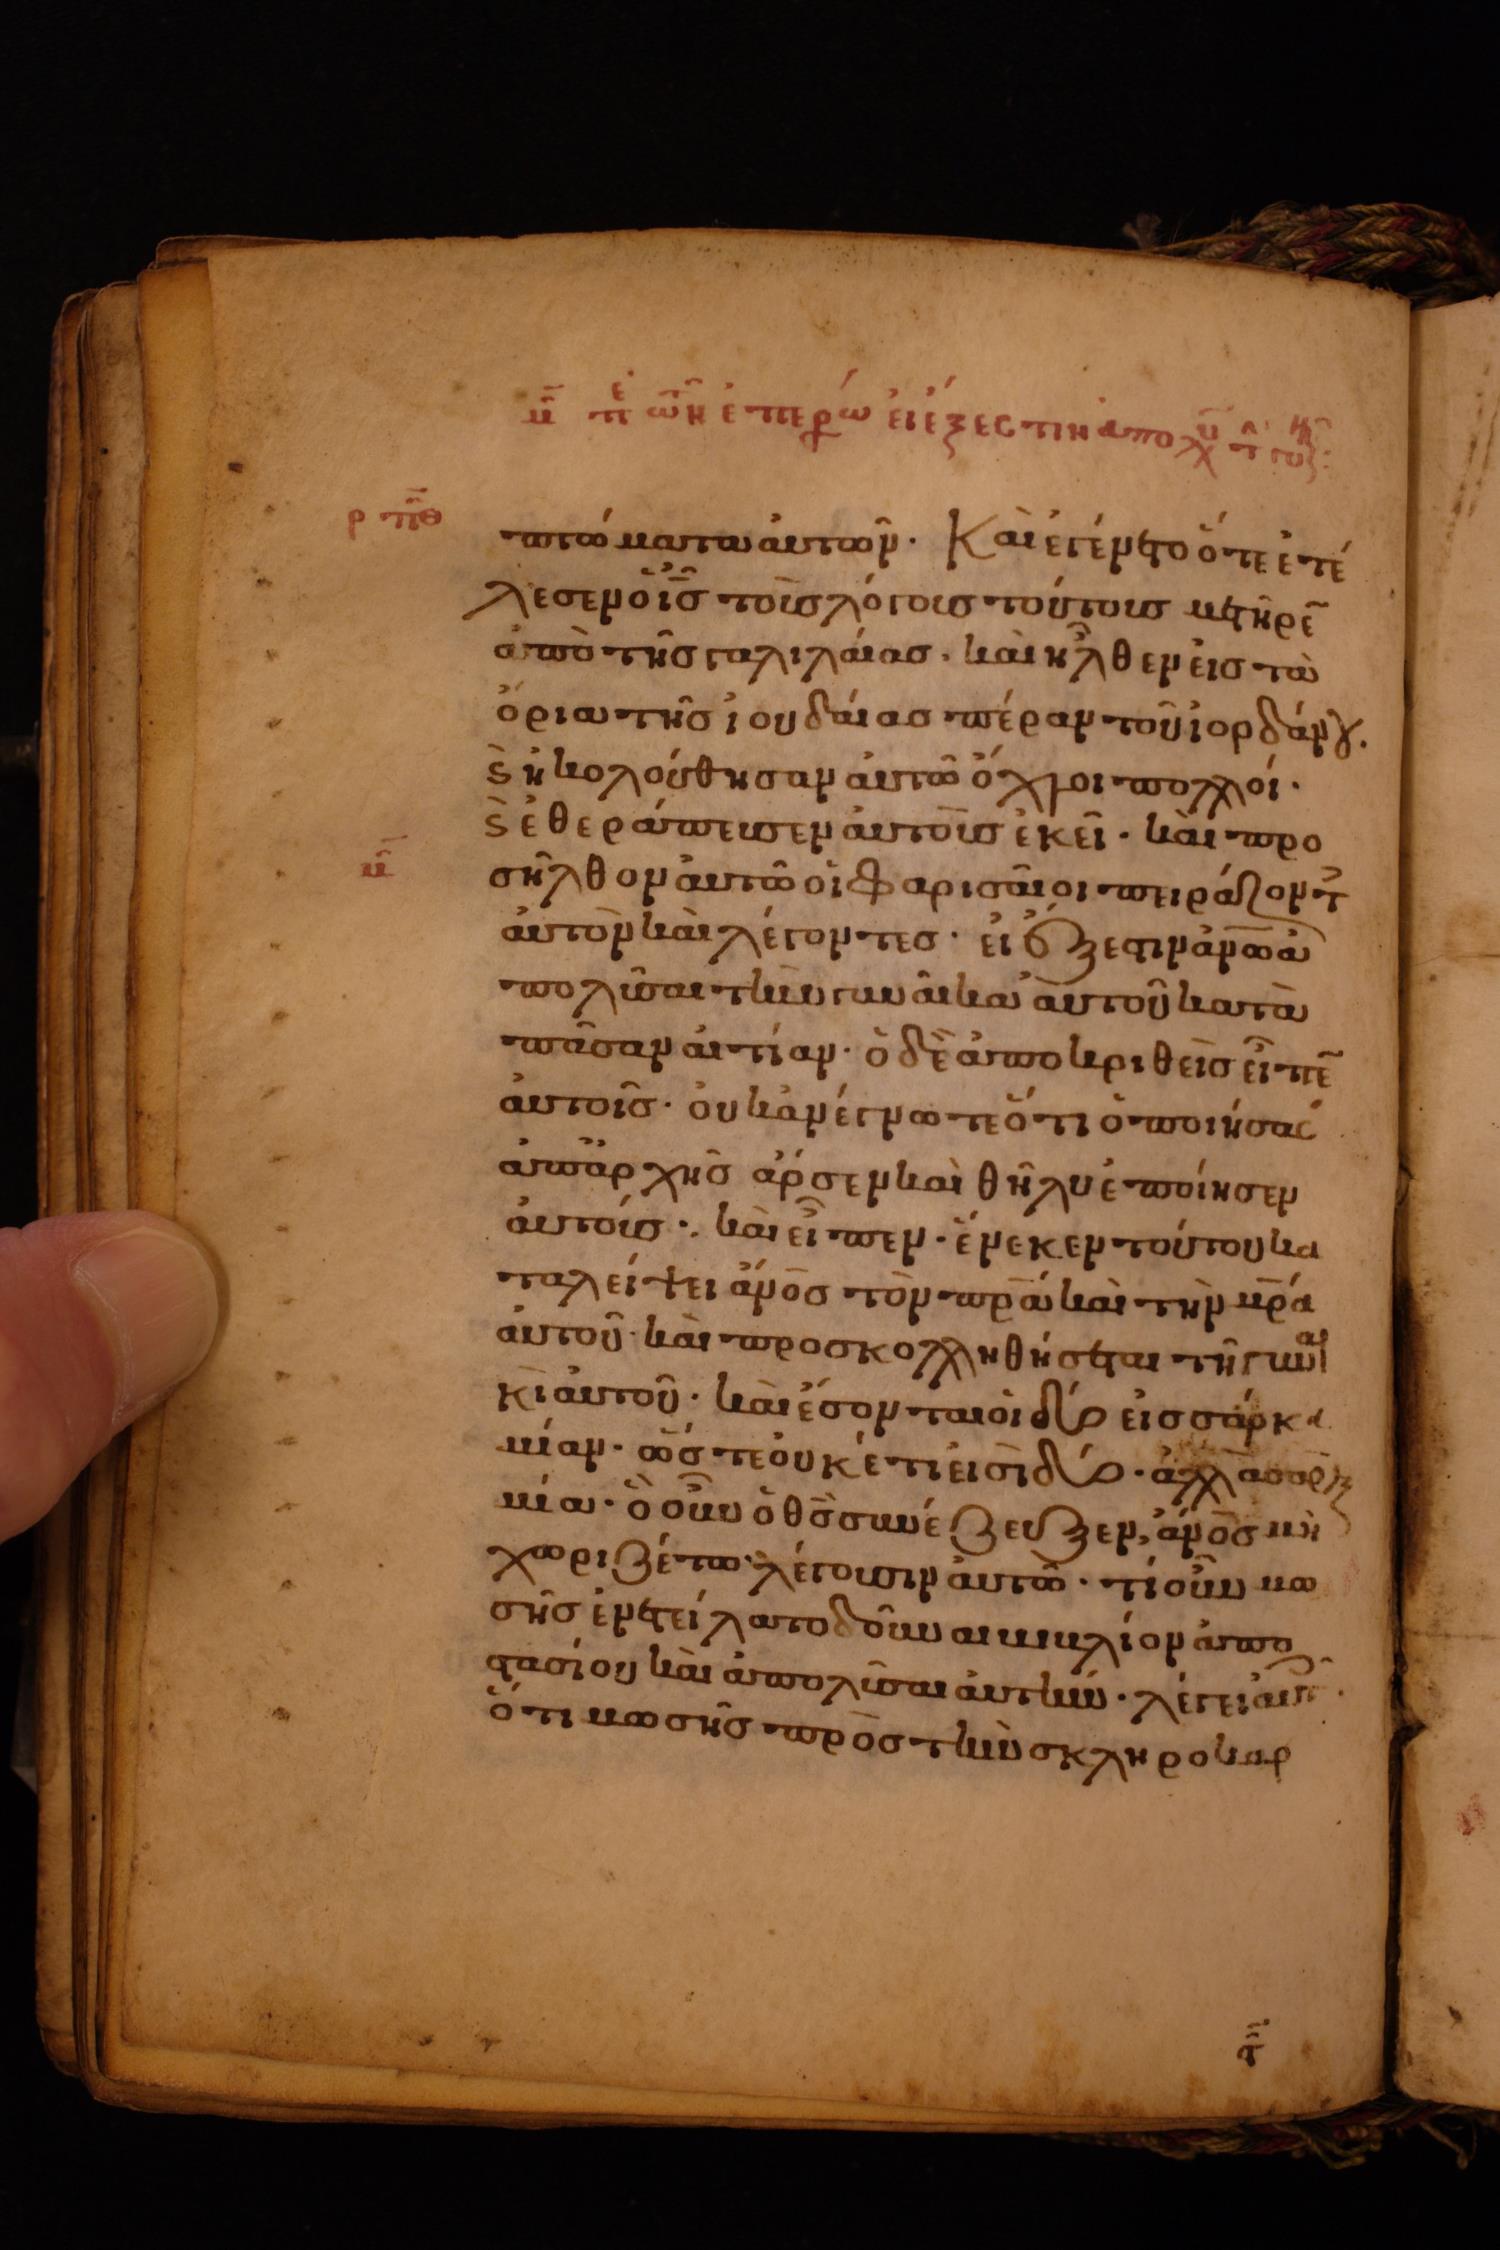 μ̅ πε ὧν ἐπερω εἰ ἔξεστιν ἀπολυ τ γυ:
ρπθ
πτώματα ἀυτῶν. Καὶ ἐγένετο ὅτε ἐτέ
λεσεν ὁ ι̅ς̅ τοὺς λόγους τούτους μετῆρε̅
ἀπὸ τῆς γαλιλαίας. καὶ ἦλθεν εἰς τὰ
ὅρια τῆς ἰουδαίας πέραν τοῦ ἰορδάνου.
ϛ ἠκολούθησαν ἀυτῶ ὄχλοι πολλοί.
ϛ ἐθεράπευσεν ἀυτοὺς ἐκεῖ. καὶ προ
μ̅
σῆλθον ἀυτῶ οἱ φαρισαῖοι πειράζοντ
ἀυτὸν καὶ λέγοντες. εἰ ἔξεστιν α̅ν̅ω̅ ἀ
πολῦσαι τὴν γυναῖκα ἀυτοῦ κατὰ
πᾶσαν αἰτίαν. ὁ δὲ ἀποκριθεὶς εἶπε̅
ἀυτοῖς. ὀυκ ἀνέγνωτε ὅτι ὁ ποιήσας
ἀπἀρχῆς ἄρσεν καὶ θῆλυ ἐποίησεν
ἀυτούς. καὶ εἶπεν. ἕνεκεν τούτου κα
ταλείψει α̅ν̅ο̅ς̅ τὸν π̅ρ̅α̅ καὶ τὴν μ̅ρ̅α̅
ἀυτοῦ. καὶ προσκολληθήσεται τῆ γυναι
κὶ ἀυτοῦ. καὶ ἔσονται οἱ δύο εἰς σάρκα
μίαν. ὥστε ὀυκέτι εἰσὶ δύο. ἀλλὰ σὰρξ
μία. ὃ οὖν ὁ θ̅ς̅ συνέζευξεν, α̅ν̅ο̅ς̅ μὴ
χωριζέτω. λέγουσιν ἀυτῶ. τί οὖν μω
σῆς ἐνετείλατο δοῦναι βιβλίον ἀπο
στασίου καὶ ἀπολῦσαι ἀυτήν. λέγει ἀυτ.
ὅτι μωσῆς πρὸς τὴν σκληροκαρ